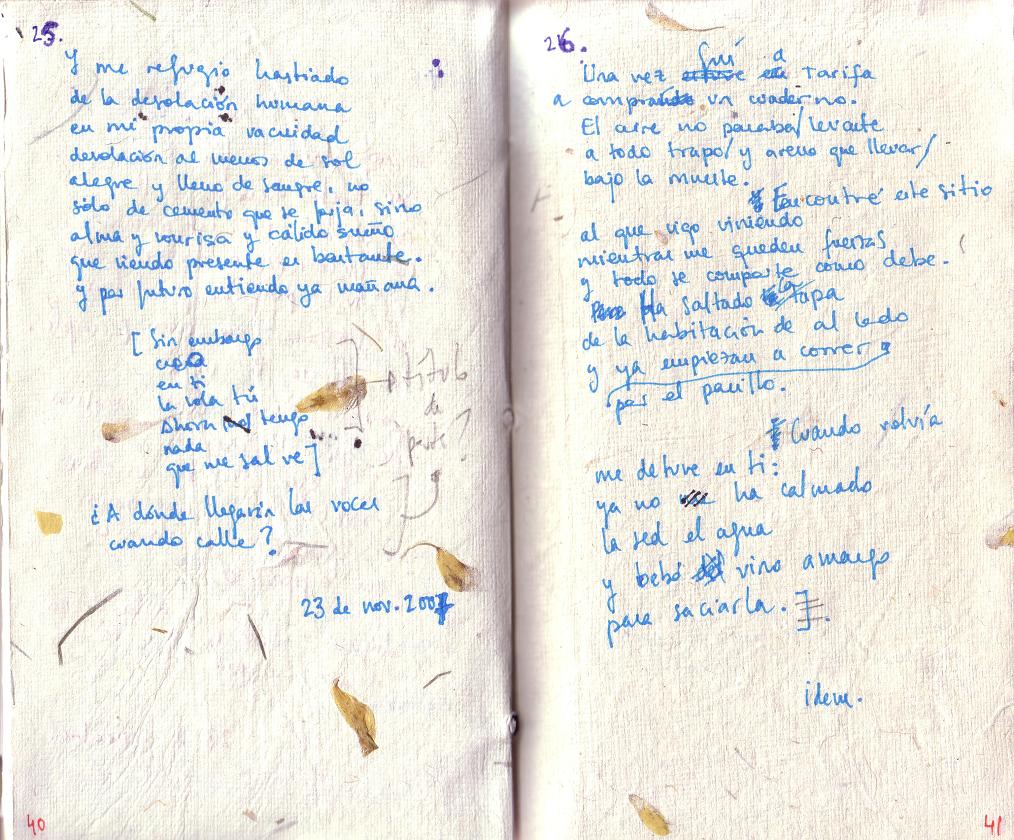 25.
Y me refugio hastiado
de la desolación humana
en mi propia vacuidad
desolación al menos de sol
alegre y lleno de sangre, no
sólo de cemento que se forja, sino
alma y sonrisa y cálido sueño
que siendo presente es bastante.
y por futuro entiendo ya mañana.
[ Sin embargo
creo
en ti
la sola tú
Ahora no tengo
nada
que me salve ]
título
de
parte?
¿A dónde llegarán las voces
cuando calle?
23 de nov. 2007
40
26.
Una vez fui a Tarifa
a comprar un cuaderno.
El aire no paraba/levante
a todo trapo/y arena que llevar/
bajo la muerte.
Encontré este sitio
al que sigo viniendo
mientras me queden fuerzas
y todo se comparte como debe.
Ha saltado la tapa
de la habitación de al lado
y ya empiezan a correr
por el pasillo.
Cuando volvía
me detuve en ti:
ya no ha calmado
la sed el agua
y bebo vino amargo
para saciarla. ].
idem.
41